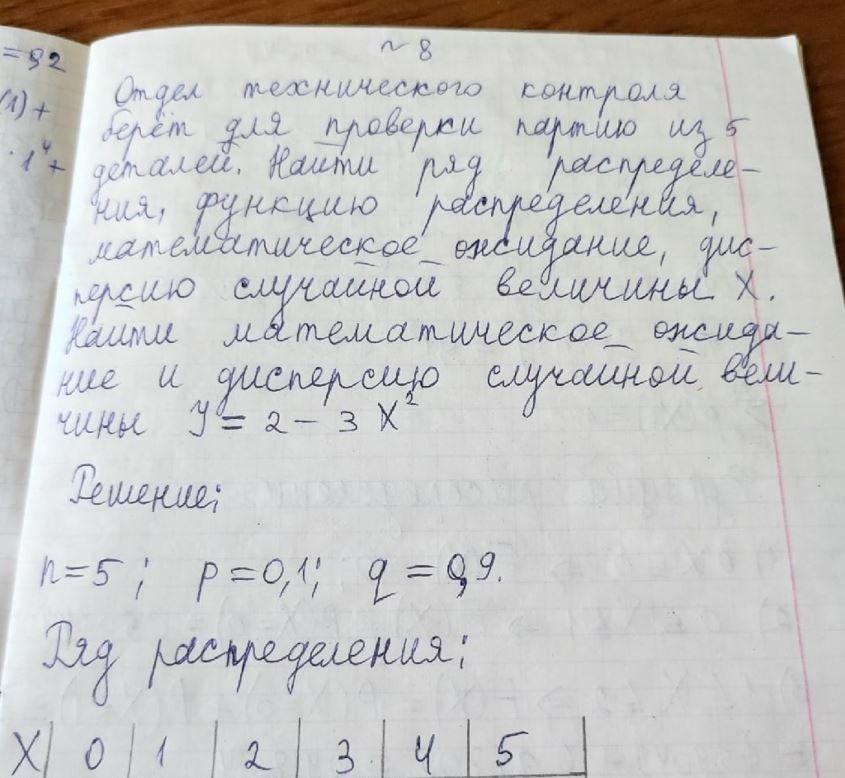 =92
(1)+
·1⁴+
~ 8
Отдел технического контроля
берёт для проверки партию из 5
деталей. Найти ряд распределе-
ния, функцию распределения,
математическое ожидание, дис-
персию случайной величины X.
Найти математическое ожида-
ние и дисперсию случайной вели-
чины Y = 2 - 3 X²
Решение:
n=5; p=0,1; q=0,9.
Ряд распределения:
X | 0 | 1 | 2 | 3 | 4 | 5